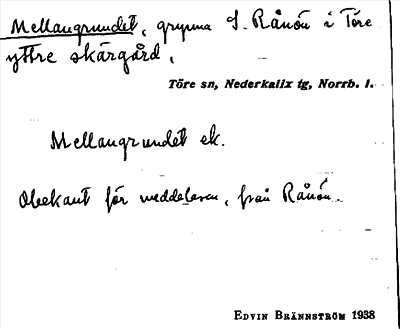 Mellangrundet, grynna S. Rånön i Töre
yttre skärgård.
Töre sn, Nederkalix tg, Norrb. l.
Mellangrundet ek.
Obekant för meddelaren, från Rånön.
Edvin Brännström 1938